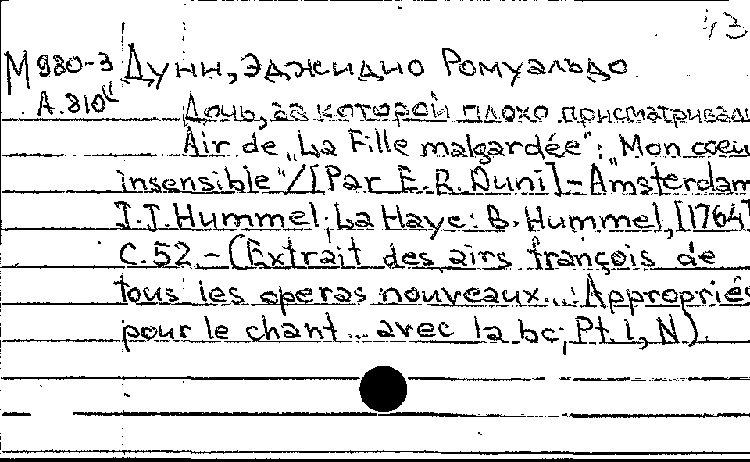 43
М 980-3 Дуни, Эджидио Ромуальдо
А.810
Дочь, за которой плохо присматривали
Air de „La Fille malgardée": „Mon coeu
insensible"/[Par E.R.Duni]-Amsterdam
J.J.Hummel; La Haye: B.Hummel, [1764]
С.52.-(Extrait des airs françois de
tous les operas nouveaux...: Appropriés
pour le chant... avec la bc; Pt.1, N).